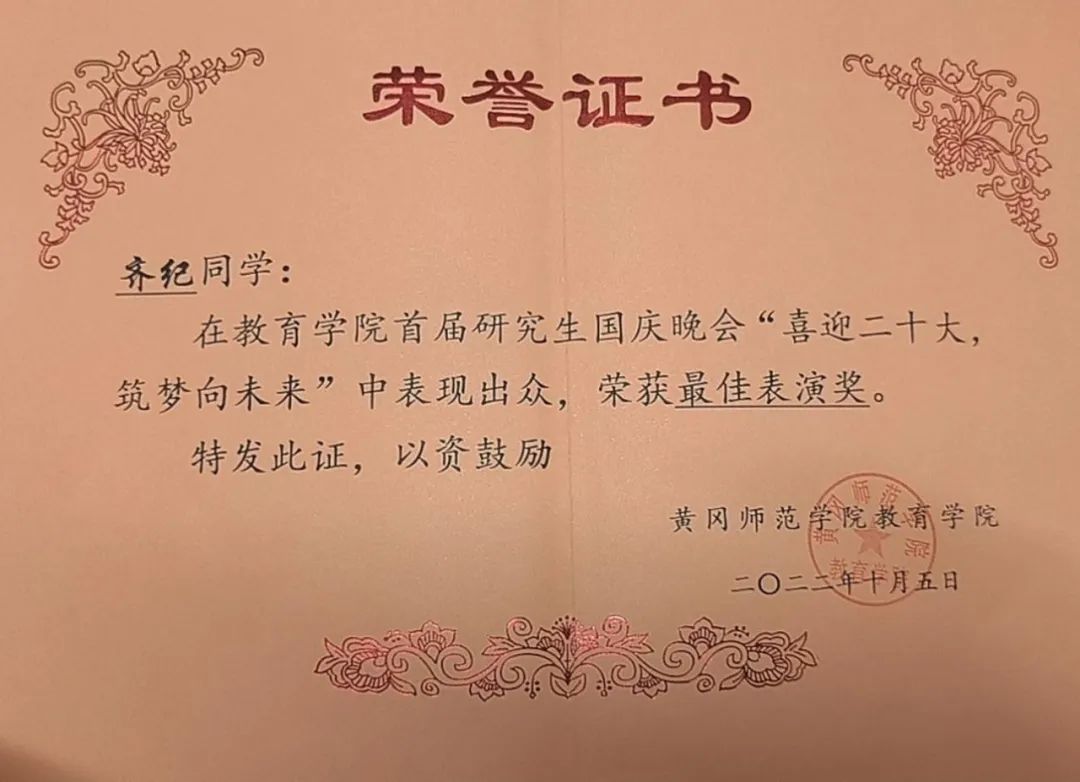 荣誉证书
齐纪同学：
在教育学院首届研究生国庆晚会“喜迎二十大，
筑梦向未来”中表现出众，荣获最佳表演奖。
特发此证，以资鼓励
黄冈师范学院教育学院
二〇二二年十月五日
黄冈师范学院
教育学院